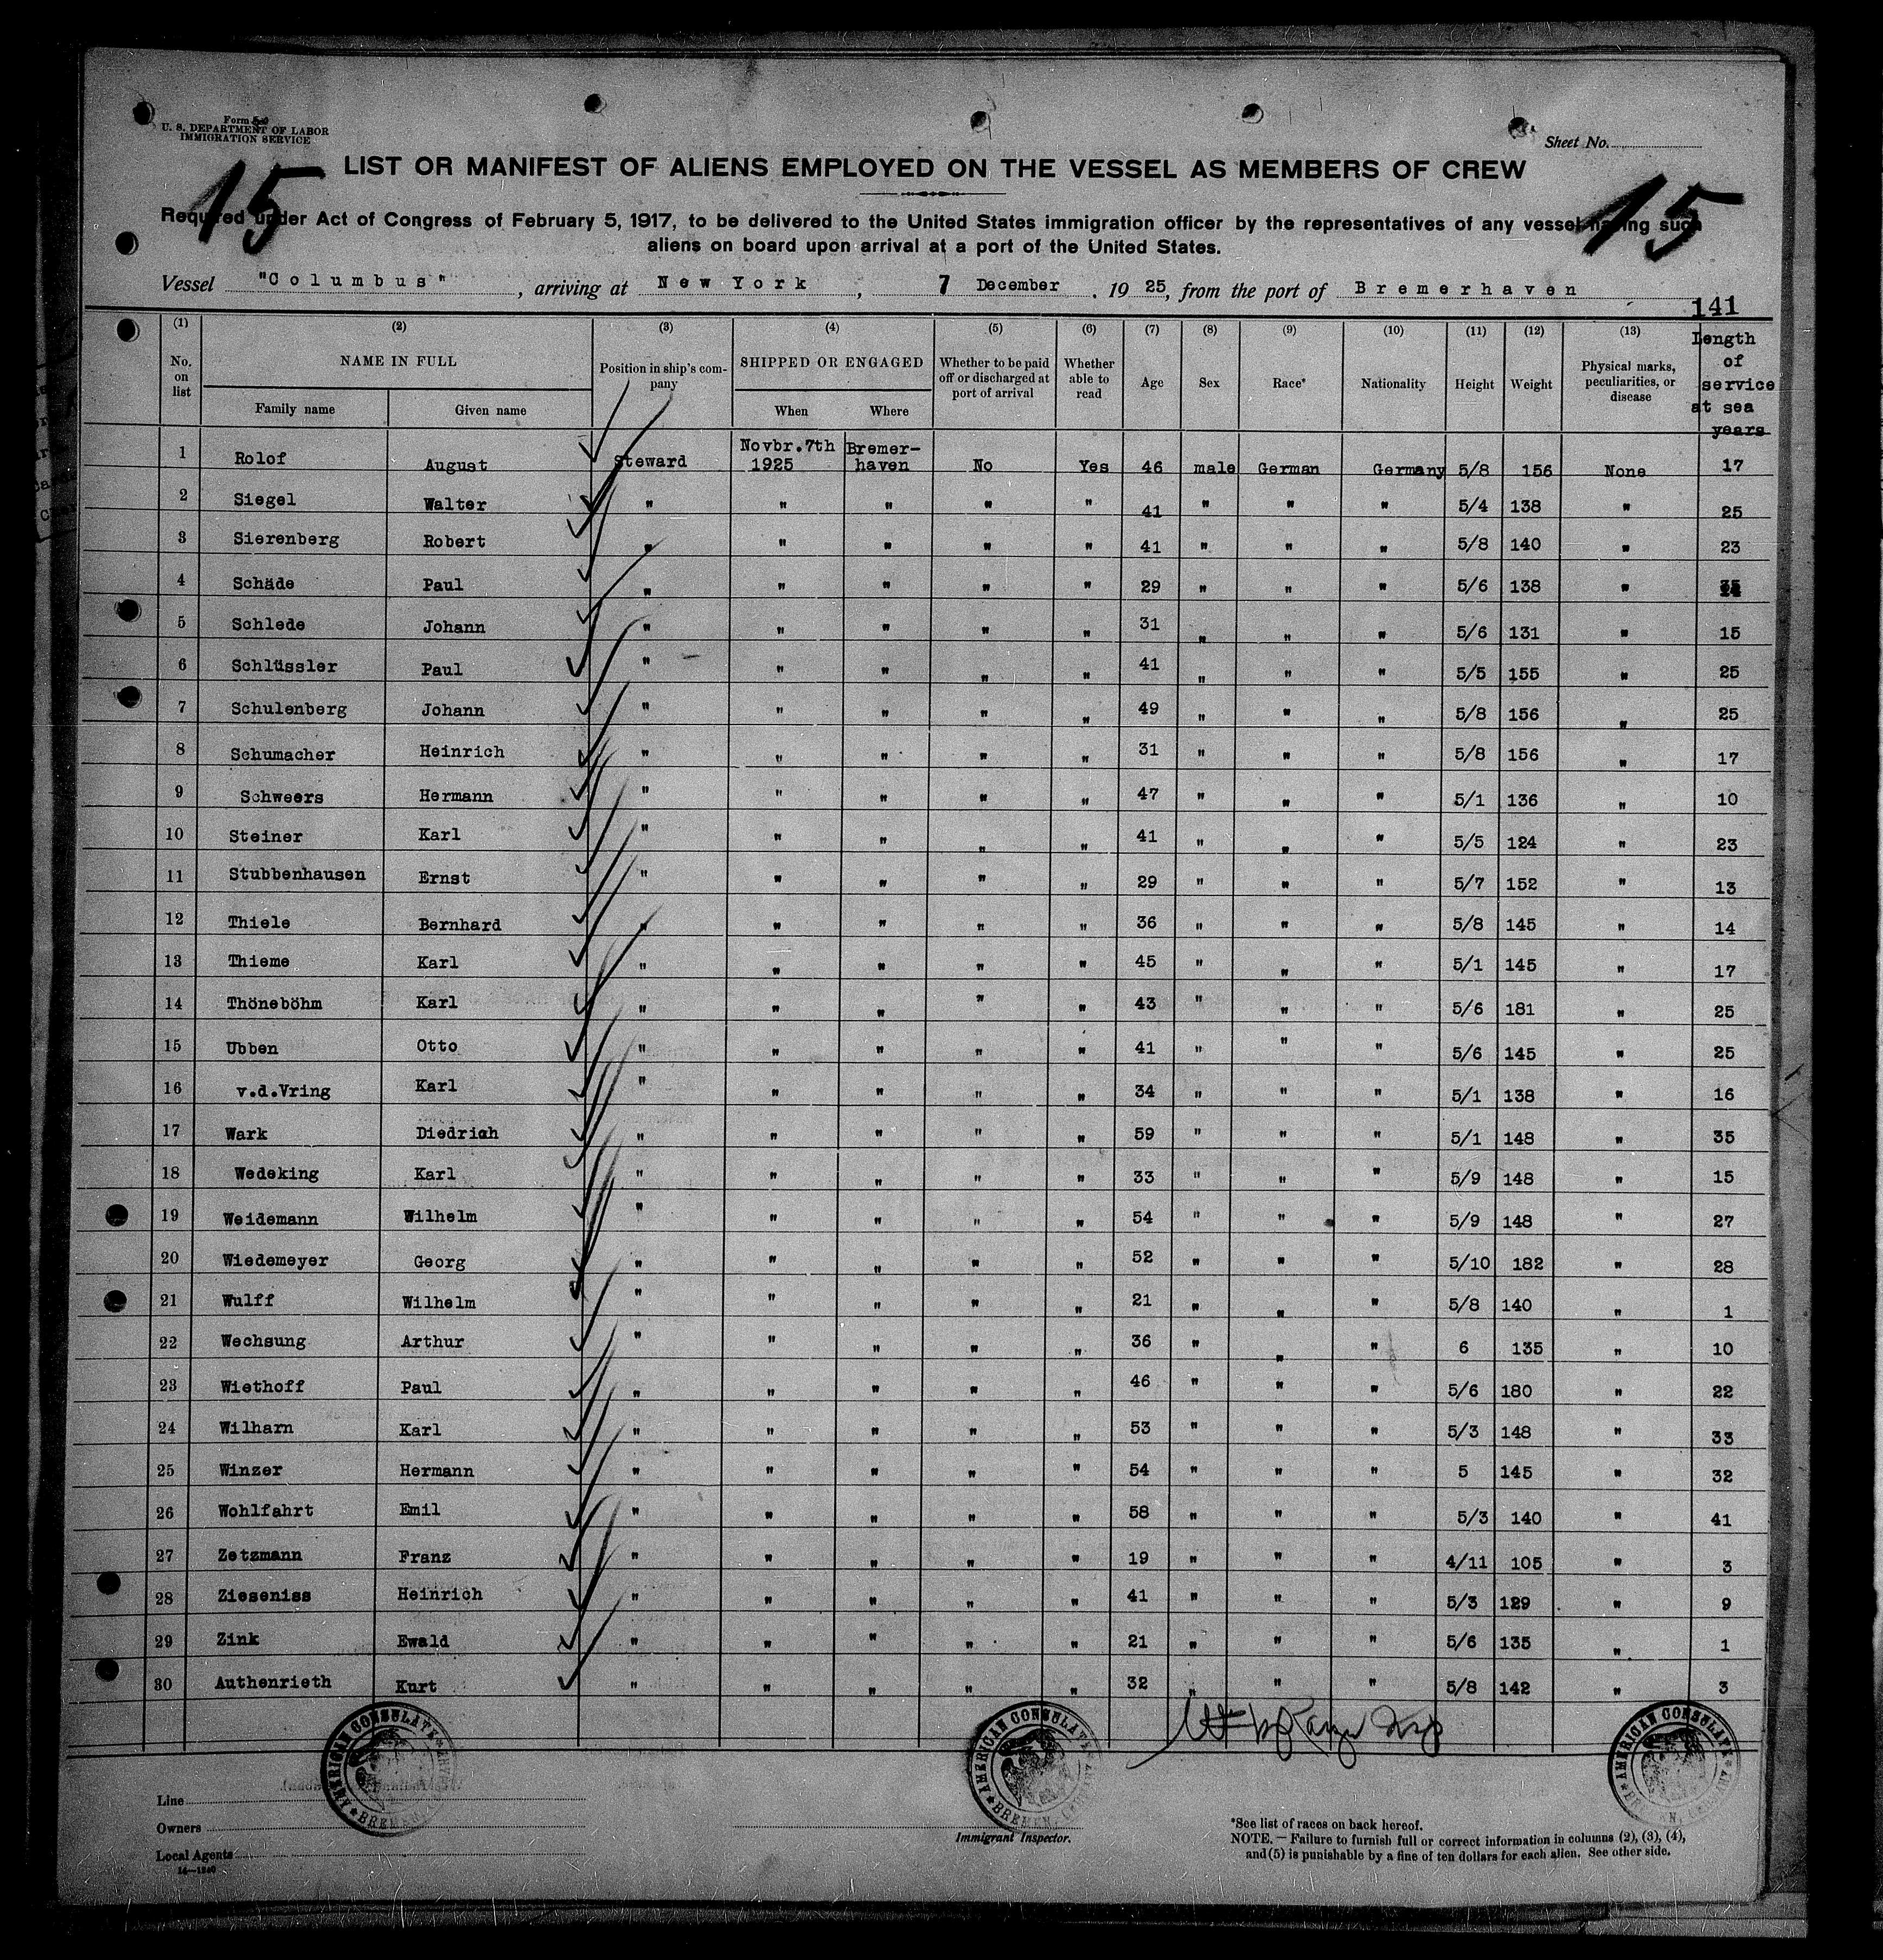 Form
U. S. DEPARTMENT OF LABOR
IMMIGRATION SERVICE
Sheet No.
15
15
LIST OR MANIFEST OF ALIENS EMPLOYED ON THE VESSEL AS MEMBERS OF CREW
Required under Act of Congress of February 5, 1917, to be delivered to the United States immigration officer by the representatives of any vessel having such
aliens on board upon arrival at a port of the United States.
Vessel "Columbus", arriving at New York, 7 December, 1925, from the port of Bremerhaven
141
(1) (2) (3) (4) (5) (6) (7) (8) (9) (10) (11) (12) (13)
No. on list NAME IN FULL Family name Given name Position in ship's company SHIPPED OR ENGAGED When Where Whether to be paid off or discharged at port of arrival Whether able to read Age Sex Race* Nationality Height Weight Physical marks, peculiarities, or disease Length of service at sea years
1 Rolof August Steward Novbr. 7th 1925 Bremer-haven No Yes 46 male German Germany 5/8 156 None 17
2 Siegel Walter " " " " " 41 " " " 5/4 138 " 25
3 Sierenberg Robert " " " " " 41 " " " 5/8 140 " 23
4 Schäde Paul " " " " " 29 " " " 5/6 138 "
5 Schlede Johann " " " " " 31 " " " 5/6 131 " 15
6 Schlüssler Paul " " " " " 41 " " " 5/5 155 " 25
7 Schulenberg Johann " " " " " 49 " " " 5/8 156 " 25
8 Schumacher Heinrich " " " " " 31 " " " 5/8 156 " 17
9 Schweers Hermann " " " " " 47 " " " 5/1 136 " 10
10 Steiner Karl " " " " " 41 " " " 5/5 124 " 23
11 Stubbenhausen Ernst " " " " " 29 " " " 5/7 152 " 13
12 Thiele Bernhard " " " " " 36 " " " 5/8 145 " 14
13 Thieme Karl " " " " " 45 " " " 5/1 145 " 17
14 Thöneböhm Karl " " " " " 43 " " " 5/6 181 " 25
15 Ubben Otto " " " " " 41 " " " 5/6 145 " 25
16 v.d.Vring Karl " " " " " 34 " " " 5/1 138 " 16
17 Wark Diedrich " " " " " 59 " " " 5/1 148 " 35
18 Wedeking Karl " " " " " 33 " " " 5/9 148 " 15
19 Weidemann Wilhelm " " " " " 54 " " " 5/9 148 " 27
20 Wiedemeyer Georg " " " " " 52 " " " 5/10 182 " 28
21 Wulff Wilhelm " " " " " 21 " " " 5/8 140 " 1
22 Wechsung Arthur " " " " " 36 " " " 6 135 " 10
23 Wiethoff Paul " " " " " 46 " " " 5/6 180 " 22
24 Wilharn Karl " " " " " 53 " " " 5/3 148 " 33
25 Winzer Hermann " " " " " 54 " " " 5 145 " 32
26 Wohlfahrt Emil " " " " " 58 " " " 5/3 140 " 41
27 Zetzmann Franz " " " " " 19 " " " 4/11 105 " 3
28 Zieseniss Heinrich " " " " " 41 " " " 5/3 129 " 9
29 Zink Ewald " " " " " 21 " " " 5/6 135 " 1
30 Authenrieth Kurt " " " " " 32 " " " 5/8 142 " 3
AMERICAN CONSULATE BREMEN
AMERICAN CONSULATE BREMEN
AMERICAN CONSULATE
Line
Owners
Local Agents
14—1240
Immigrant Inspector.
*See list of races on back hereof.
NOTE.—Failure to furnish full or correct information in columns (2), (3), (4),
and (5) is punishable by a fine of ten dollars for each alien. See other side.